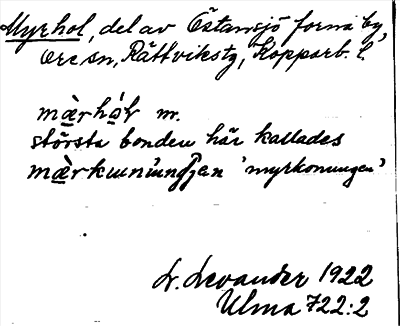 Myrhol, del av Östansjö forna by,
Ore sn, Rättvikstg, Kopparb. l.
mæ̀rhól m.
största bonden här kallades
'myrkonungen'
L. Levander 1922
Ulma 722:2